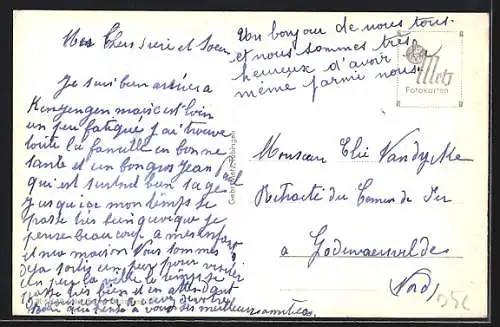 Mes Chers frère et Soeur
Je suis bien arrivée a
Kenzingen mais c'est loin
un peu fatiguée j'ai trouvé
toute la famille en bonne
santé et un bon gros Jean
qui est surtout bien sage
Jusqu'ici mon temps se
passe très bien quoique je
pense beaucoup a mes enfants
et ma maison Nous sommes
déja sortis un peu pour visiter
un peu la ville le temps se
passe très bien et en attendant
a vous des meilleures amitiés.
Un bonjour de nous tous.
et nous sommes très
heureux d'avoir
même parmi nous.
Metz
Fotokarten
Gebr. Metz, Tübingen
Monsieur Elie Vandycke
Retraité du Chemin de Fer
a Godewaersvelde
(Nord)